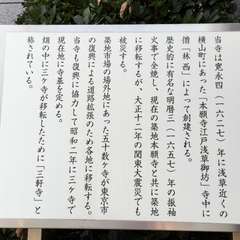 当寺は寛永四（一六二七）年に浅草近くの
横山町にあった「本願寺江戸浅草御坊」寺中に
僧「林西」によって創建される。
歴史的に有名な明暦三（一六五七）年の振袖
火事で全焼し、現在の築地本願寺と共に築地
に移転するが、大正十二年の関東大震災でも
被災する。
築地市場の場外地にあった五十数ヶ寺が東京市
の復興による道路拡張のため各地に移転する。
当寺も復興に協力して昭和二年に三ヶ寺で
現在地に寺基を定める。
畑の中に三ヶ寺が移転したために「三軒寺」と
称されている。